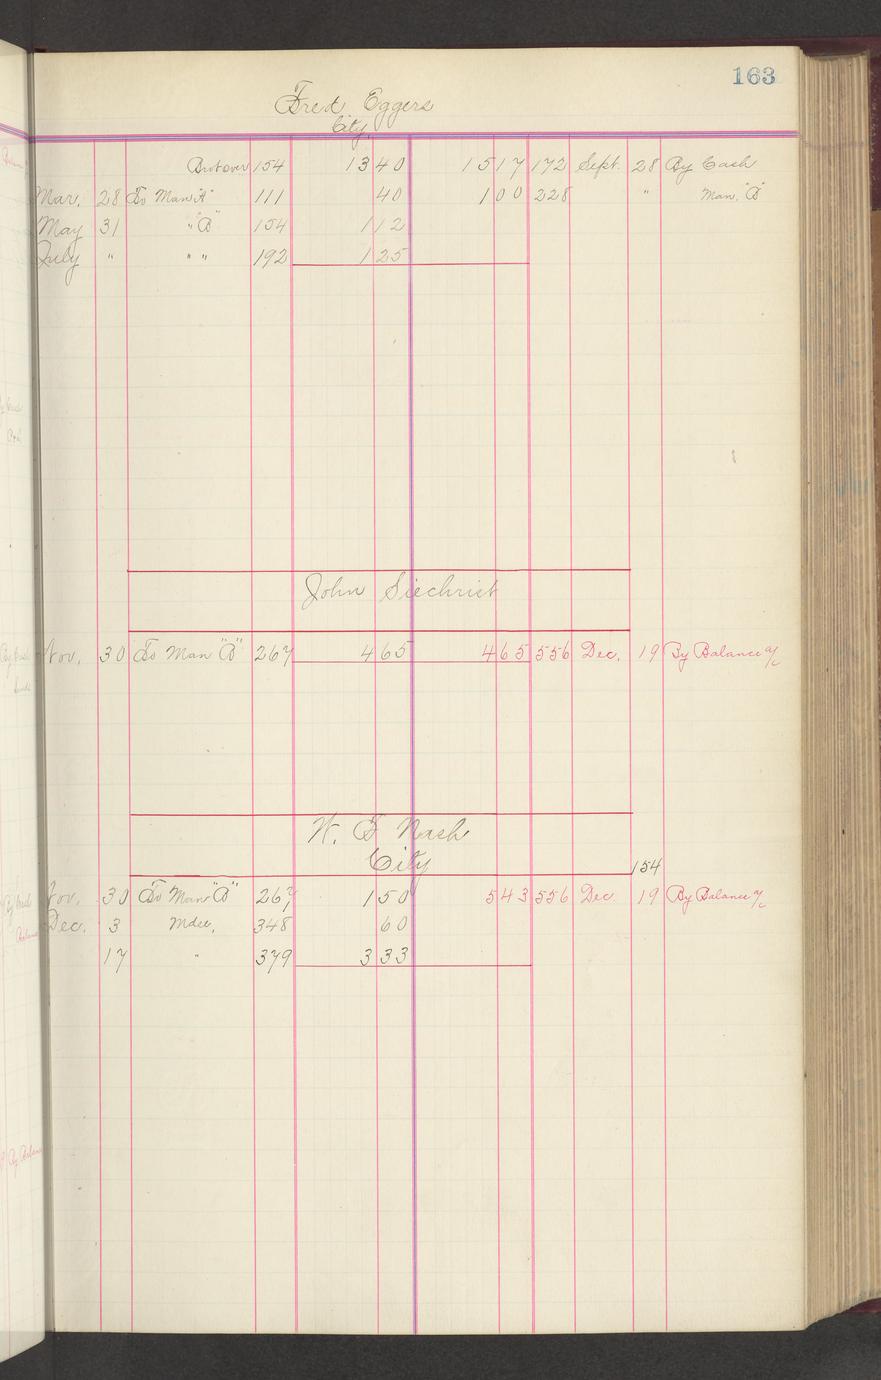 163
Fred Eggers
City
Brot over 154 1340 1517 172 Sept. 28 By Cash
Mar. 28 To Man "A" 111 40 100 228 " Man. "B"
May 31 " "B" 154 112
July " " " 192 125
John Siechrist
Nov. 30 To Man "B" 267 465 465 556 Dec. 19 By Balance a/c
W. F. Nash
City
154
Nov. 30 To Man "B" 267 150 543 556 Dec 19 By Balance a/c
Dec. 3 Mdse, 348 60
17 " 379 333